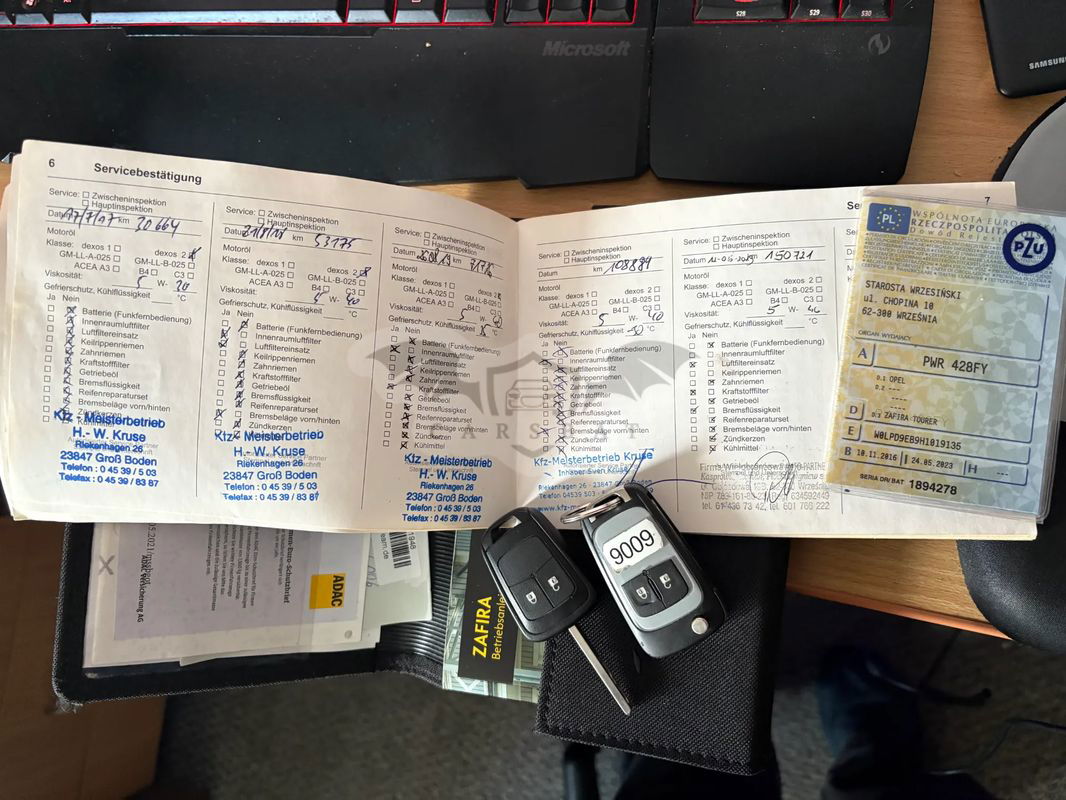 Microsoft
S28
S29
S30
SAMSUNG
6
Servicebestätigung
Service: Zwischeninspektion
Hauptinspektion
Datum 17/7/17 km 30664
Motoröl
Klasse: dexos 1 dexos 2
GM-LL-A-025 GM-LL-B-025
ACEA A3 B4 C3
Viskosität: 5 W- 30
Gefrierschutz, Kühlflüssigkeit °C
Ja Nein
Batterie (Funkfernbedienung)
Innenraumluftfilter
Luftfiltereinsatz
Keilrippenriemen
Zahnriemen
Kraftstofffilter
Getriebeöl
Bremsflüssigkeit
Reifenreparaturset
Bremsbeläge vorn/hinten
Zündkerzen
Kfz - Meisterbetrieb
H.- W. Kruse
Riekenhagen 26
23847 Groß Boden
Telefon : 0 45 39 / 5 03
Telefax : 0 45 39 / 83 87
Service: Zwischeninspektion
Hauptinspektion
Datum km 53175
Motoröl
Klasse: dexos 1 dexos 2
GM-LL-A-025 GM-LL-B-025
ACEA A3 B4 C3
Viskosität: W- 40
Gefrierschutz, Kühlflüssigkeit °C
Ja Nein
Batterie (Funkfernbedienung)
Innenraumluftfilter
Luftfiltereinsatz
Keilrippenriemen
Zahnriemen
Kraftstofffilter
Getriebeöl
Bremsflüssigkeit
Reifenreparaturset
Bremsbeläge vorn/hinten
Zündkerzen
Kfz - Meisterbetrieb
H.- W. Kruse
Riekenhagen 26
23847 Groß Boden
Telefon : 0 45 39 / 5 03
Telefax : 0 45 39 / 83 87
Service: Zwischeninspektion
Hauptinspektion
Datum km
Motoröl
Klasse: dexos 1 dexos 2
GM-LL-A-025 GM-LL-B-025
ACEA A3 B4 C3
Viskosität: 5 W- 40
Gefrierschutz, Kühlflüssigkeit °C
Ja Nein
Batterie (Funkfernbedienung)
Innenraumluftfilter
Luftfiltereinsatz
Keilrippenriemen
Zahnriemen
Kraftstofffilter
Getriebeöl
Bremsflüssigkeit
Reifenreparaturset
Bremsbeläge vorn/hinten
Zündkerzen
Kühlmittel
Kfz - Meisterbetrieb
H.- W. Kruse
Riekenhagen 26
23847 Groß Boden
Telefon : 0 45 39 / 5 03
Telefax : 0 45 39 / 83 87
7
Service: Zwischeninspektion
Hauptinspektion
Datum km 108884
Motoröl
Klasse: dexos 1 dexos 2
GM-LL-A-025 GM-LL-B-025
ACEA A3 B4 C3
Viskosität: 5 W- 40
Gefrierschutz, Kühlflüssigkeit -30 °C
Ja Nein
Batterie (Funkfernbedienung)
Innenraumluftfilter
Luftfiltereinsatz
Keilrippenriemen
Zahnriemen
Kraftstofffilter
Getriebeöl
Bremsflüssigkeit
Reifenreparaturset
Bremsbeläge vorn/hinten
Zündkerzen
Kühlmittel
Kfz-Meisterbetrieb Kruse
Inhaber Sven Kruse
Riekenhagen 26
Telefon 04539 503
Service: Zwischeninspektion
Hauptinspektion
Datum km 150721
Motoröl
Klasse: dexos 1 dexos 2
GM-LL-A-025 GM-LL-B-025
ACEA A3 B4 C3
Viskosität: 5 W-
Gefrierschutz, Kühlflüssigkeit °C
Ja Nein
Batterie (Funkfernbedienung)
Innenraumluftfilter
Luftfiltereinsatz
Keilrippenriemen
Zahnriemen
Kraftstofffilter
Getriebeöl
Bremsflüssigkeit
Reifenreparaturset
Bremsbeläge vorn/hinten
Zündkerzen
Kühlmittel
tel. 61 436 73 42, tel. 601 769 222
PL
WSPÓLNOTA EUROPEJSKA
RZECZPOSPOLITA
PZU
STAROSTA WRZESIŃSKI
ul. CHOPINA 10
62-300 WRZEŚNIA
ORGAN WYDAJĄCY
A PWR 428FY
D.1 OPEL
D.2 ---
----
----
D D.3 ZAFIRA TOURER
E W0LPD9EB9H1019135
B 10.11.2016 I 24.05.2023 H ---
SERIA DR/BAT 1894278
CARSBAT
9009
ZAFIRA
Betriebsanleitung
ADAC
ADAC Versicherung AG